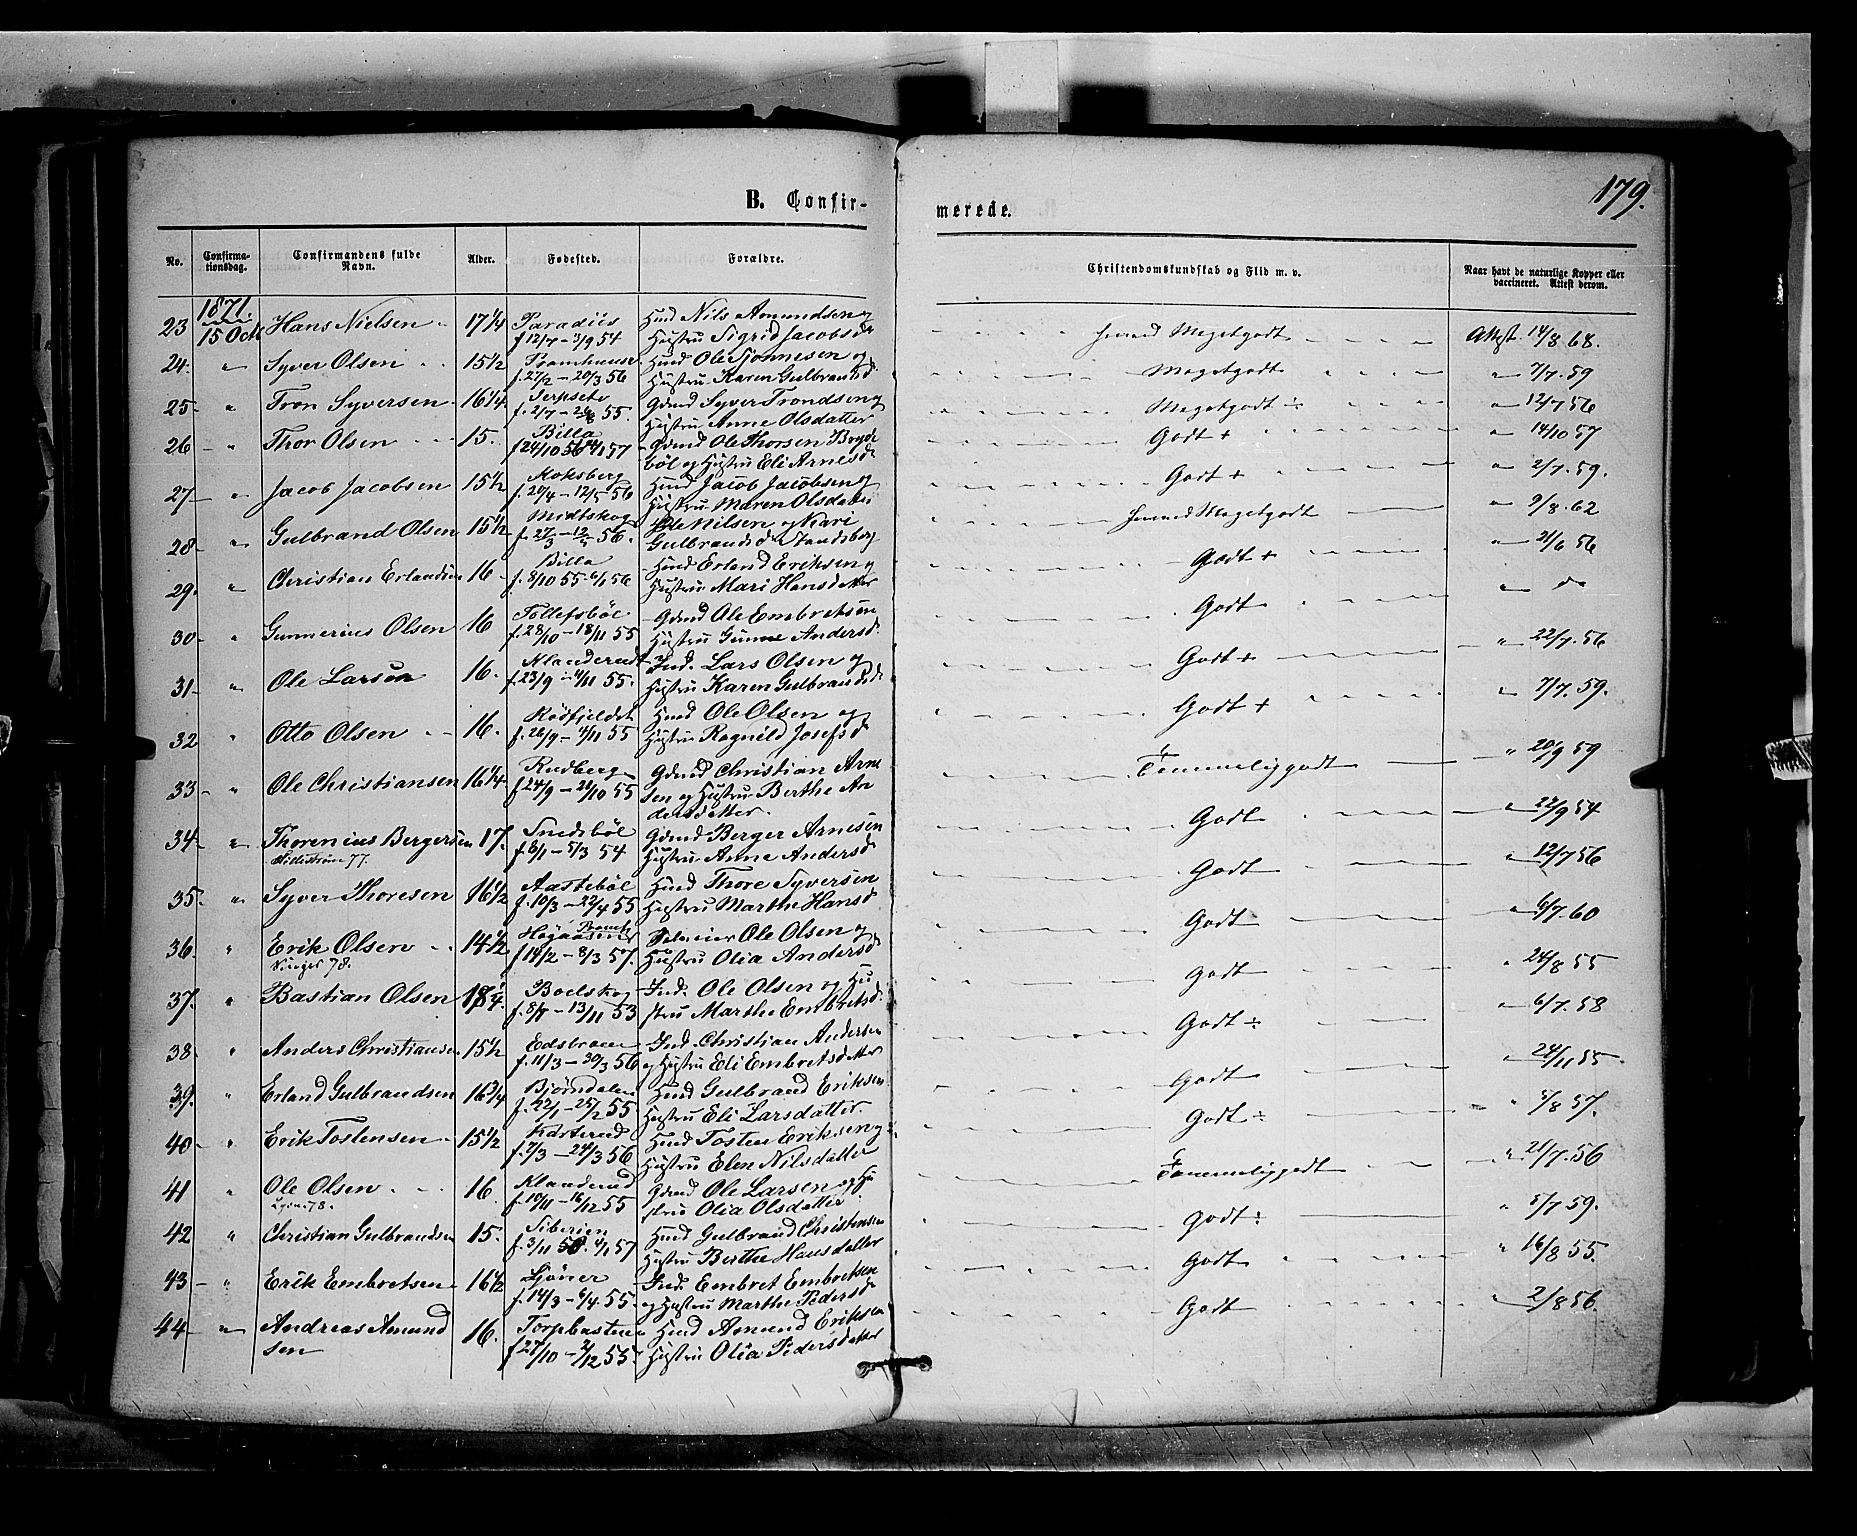 179.
B. Confir-
merede.
No.
Confirma-
tionsdag.
Confirmandens fulde
Navn.
Alder.
Fødested.
Forældre.
Christendomskundskab og Flid m. v.
Naar havt de naturlige Kopper eller
vaccineret. Attest derom.
1871.
23 15 Oct Hans Nielsen 17 1/4 Paradiis Hmd Nils Amundsen og
f 12/7 - 3/9 54 Hustru Sigrid Jacobsd
Meget godt Attest 14/8 68.
24. " Syver Olsen 15 1/2 Hmd Ole og
f. 27/2 - 20/3 56 Hustru Karen Gulbrandsd
Meget godt " 7/7. 59
25 - " Tron Syversen 16 1/4 Gdmd Syver Trondsen og
f. 2/7 - 26/8 55. Hustru Anne Olsdatter
Meget godt ÷ " 12/7 56
26 - " Thor Olsen 15. Billa Gdmd Ole Thorsen
f 24/10 56 57 böl og Hustru Eli Arnesd
Godt + " 14/10 57
27 - " Jacob Jacobsen 15 1/2 Moksberg Hmd Jacob Jacobsen og
f. 20/4 - 12/5 56 Hustru Maren Olsdatter
Godt + " 2/7. 59.
28 - " Gulbrand Olsen 15 1/2 Midtskog Ole Nilsen og Kari
f. 27/3 - 12/5 56. Gulbrandsd
Meget godt " 9/8. 62
29. " Christian Erlandsen 16 Billa Hmd Erland Eriksen og
f. 8/10 55 - 6/1 56 Hustru Mari Hansdatter
Godt + " 21/6 56
30 - " Gunnerius Olsen 16 Tollefsböl Gdmd Ole Embretsen
f. 28/10 - 18/11 55 Hustru Gunne Andersd.
Godt " do
31 - " Ole Larsen 16. Klanderud Ind. Lars Olsen og
f. 23/9 - 4/11 55. Hustru Karen Gulbrandsd
Godt + " 22/7. 56
32 " Otto Olsen 16. Rödfjeldet Hmd Ole Olsen og
f. 26/9 - 4/11 55 Hustru Ragnild Josefsd
Godt + " 7/7. 59.
33 - " Ole Christiansen 16 1/4 Rudberg Gdmd Christian Arne
f 24/9 - 28/10 55 sen og Hustru Berthe An
dersdatter.
Temmelig godt " 20/9 59
34 - " Thorenius Bergersen 17. Snedsböl Gdmd Berger Arnesen
77. f 6/1 - 5/3 54 Hustru Anne Andersd
Godt " 22/9 54
35. " Syver Thoresen 16 1/2 Aasteböl Hmd Thore Syversen
f. 10/3 - 22/4 55 Hustru Marthe Hansd
Godt " 12/7 56
36. " Erik Olsen 14 1/2 Ole Olsen og
78. f 14/2 - 8/3 57. Hustru Olia Andersd
Godt " 6/7. 60
37. " Bastian Olsen 18 1/4. Bodskog Ind. Ole Olsen og Hu
f. 8/7 - 13/11 53 stru Marthe Embretsd.
Godt " 24/8 55
38. " Anders Christiansen 15 1/2 Edsbraaten Ind. Christian Andersen
f. 11/3 - 30/3 56 og Hustru Eli Embretsdatter
Godt ÷ " 6/7. 58
39. " Erland Gulbrandsen 16 3/4 Björndalen Hmd Gulbrand Eriksen
f. 22/1 - 25/2 55. Hustru Eli Larsdatter.
Godt " 24/11 55
40 - " Erik Tostensen 15 1/2 Karterud Hmd Tosten Eriksen og
f. 2/3 - 24/3 56 Hustru Elen Nilsdatter
Godt ÷ " 5/8 57.
41 " Ole Olsen 16. Klanderud Gdmd Ole Larsen og Hu
78. f. 10/11 - 16/12 55 stru Olia Olsdatter.
Temmelig godt " 21/7. 56
42 " Christian Gulbrandsen 15. Siberien Hmd Gulbrand Christensen
f. 3/11 56. 4/1 57 Hustru Berthe Hansdatter
Godt ÷ " 5/7 59.
43 - " Erik Embretsen 16 1/2 Sjöner Ind. Embret Embretsen
f. 14/3 - 6/4. 55. og Hustru Marthe Pedersd
Godt " 16/8 55.
44 - " Andreas Amund 16. Torpbasten Hmd Amund Eriksen
sen f 27/10 - 2/12 55 Hustru Olia Pedersdatter
Godt " 2/8 56.